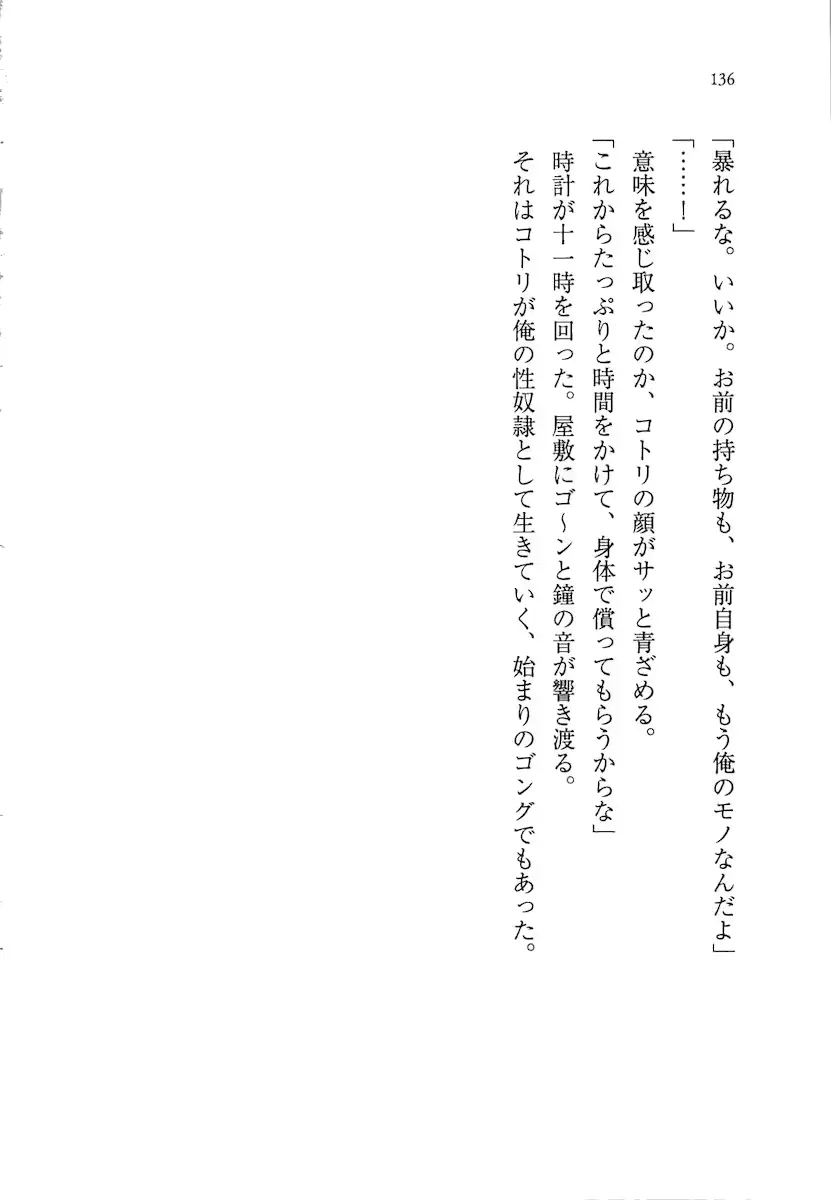 136
「暴れるな。いいか。お前の持ち物も、お前自身も、もう俺のモノなんだよ」
「……！」
意味を感じ取ったのか、コトリの顔がサッと青ざめる。
「これからたっぷりと時間をかけて、身体で償ってもらうからな」
時計が十一時を回った。屋敷にゴ〜ンと鐘の音が響き渡る。
それはコトリが俺の性奴隷として生きていく、始まりのゴングでもあった。